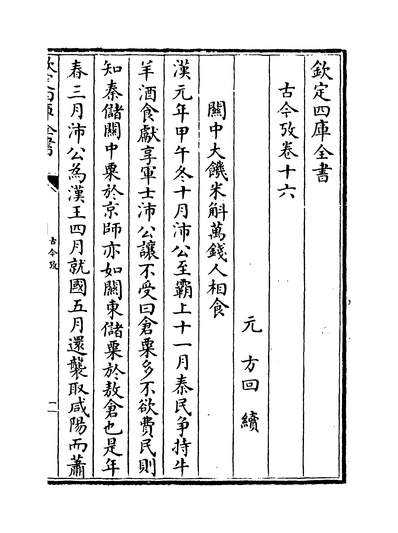 欽定四庫全書
古今攷卷十六
元 方回 續
關中大饑米斛萬錢人相食
漢元年甲午冬十月沛公至霸上十一月秦民爭持牛
羊酒食獻享軍士沛公讓不受曰倉粟多不欲費民則
知秦儲關中粟於京師亦如關東儲粟於敖倉也是年
春三月沛公為漢王四月就國五月還襲取咸陽而蕭
古今攷